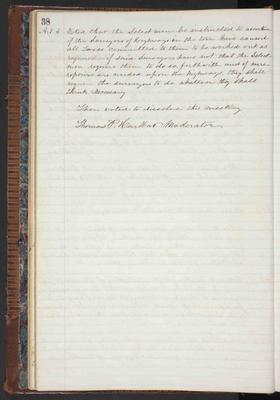 38
Art 6 Voted, that the Selectmen be instructed to ascertain
if the Surveyors of Highways in the town have caused
all Taxes committed to them to be worked out as
required if said Surveyors have not, that the Select-
men require them to do so forthwith and if more
repairs are needed upon the highways, they shall
require the surveyors to do whatever they shall
think necessary
Then voted to dissolve the meeting
Thomas P. Moderator